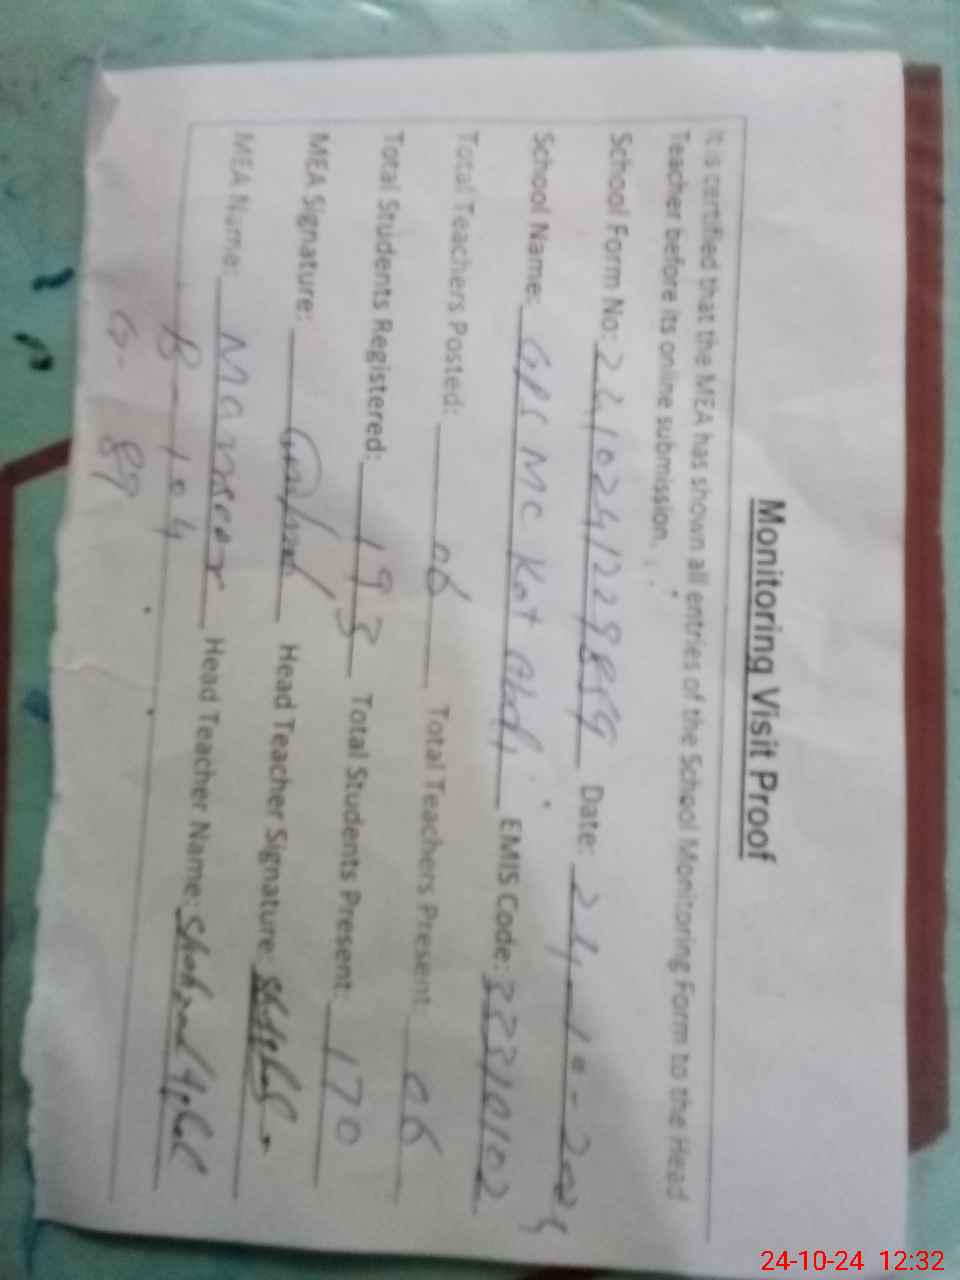 Monitoring Visit Proof
It is certified that the MEA has shown all entries of the School Monitoring Form to the Head
Teacher before its online submission.
School Form No: Date: 24-10-2024
School Name: GPS MC Kot Abdi EMIS Code: 33310102
Total Teachers Posted: 06 Total Teachers Present: 06
Total Students Registered: 193 Total Students Present: 170
MEA Signature: Head Teacher Signature:
MEA Name: Mansoor Head Teacher Name: Shahzad
B-104
G-89
24-10-24 12:32